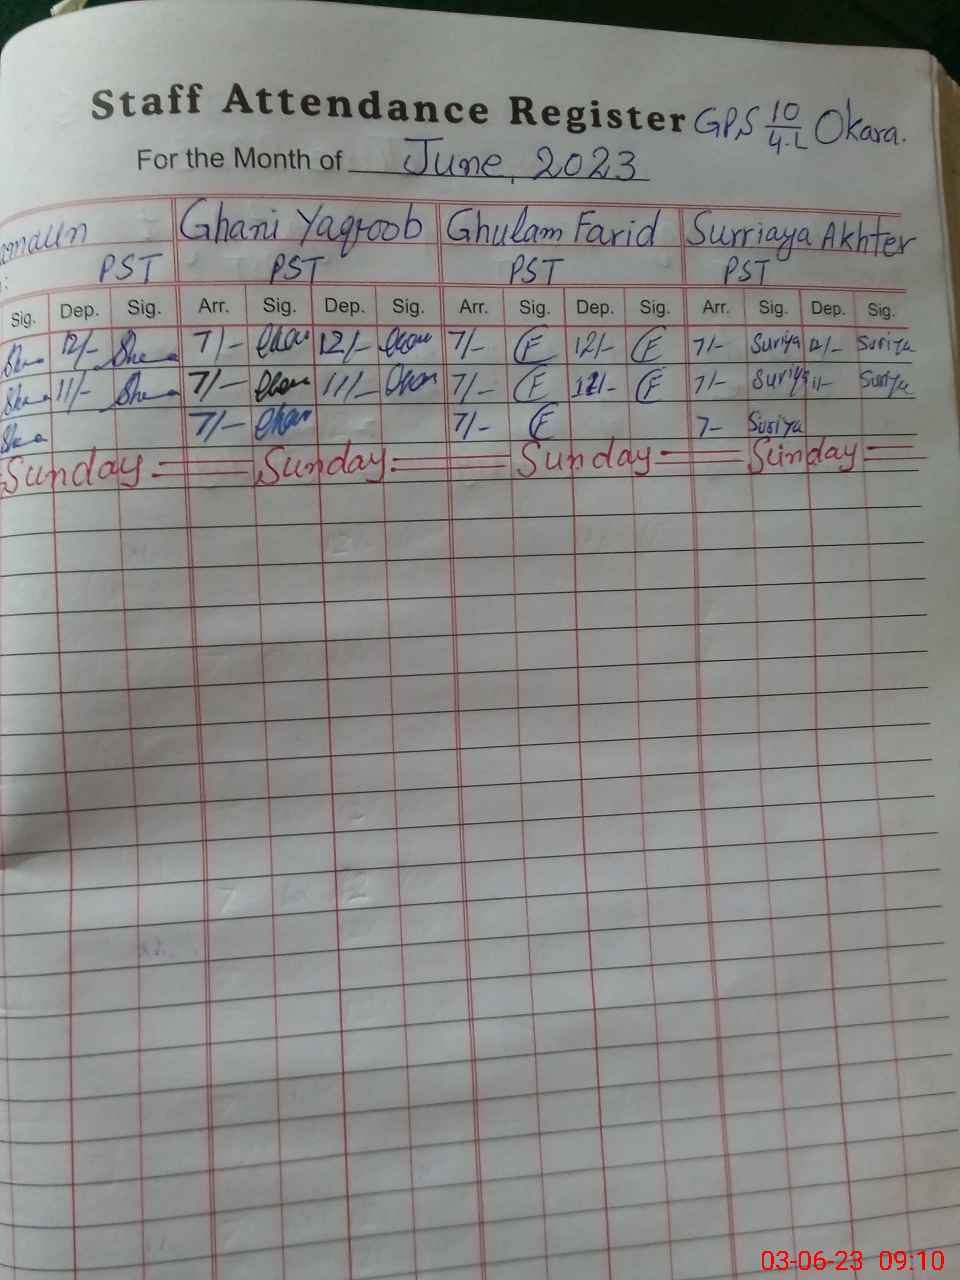 Staff Attendance Register GPS 10/4.L Okara.
For the Month of June, 2023
Ghani Yaqoob Ghulam Farid Surriaya Akhter
PST PST PST PST
Sig. Dep. Sig. Arr. Sig. Dep. Sig. Arr. Sig. Dep. Sig. Arr. Sig. Dep. Sig.
12/- 7/- 12/- 7/- F 12/- F 7/- Suriya 12/- Suriya
11/- 7/- 11/- 7/- F F 7/- Suriya 11- Suriya
7/- 7/- F 7- Suriya
Sunday Sunday Sunday Sunday
03-06-23 09:10